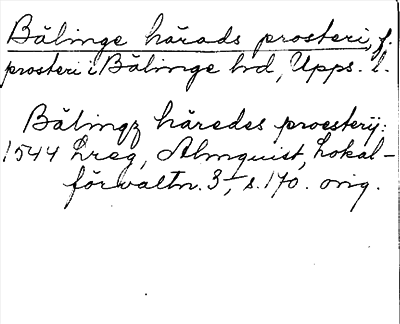 Bälinge härads prosteri, f.
prosteri i Bälinge hd, Upps. l.
Bälingz häredes proesterij:
1544 Lreg, Almquist, Lokal-
förvaltn. 3, s. 170. orig.